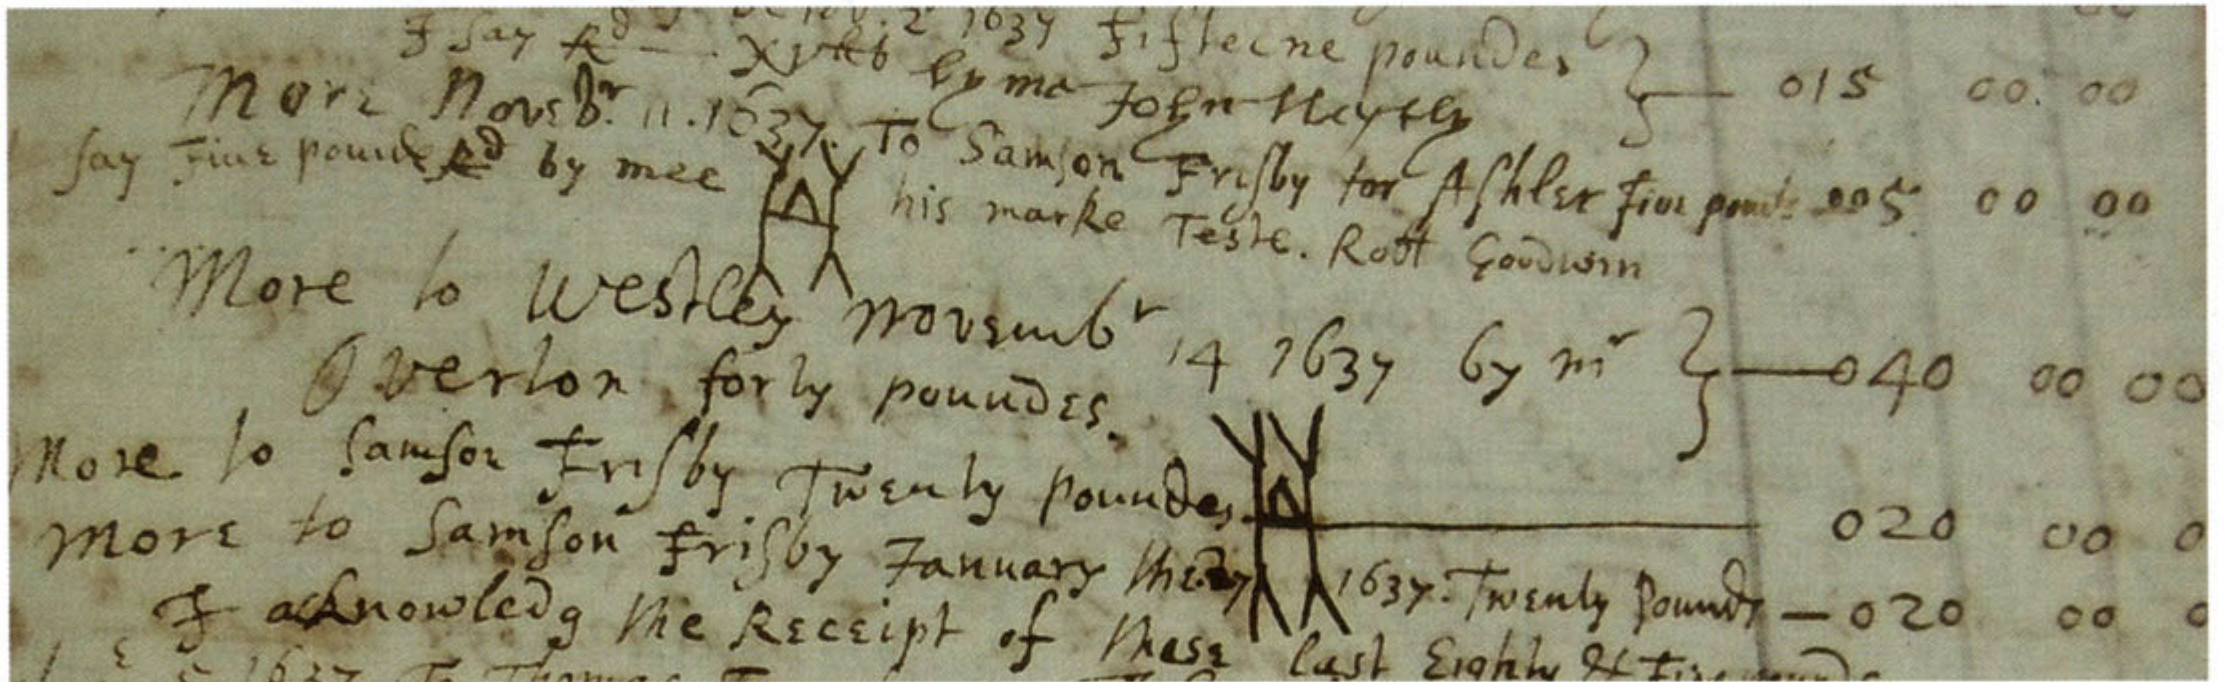 1637 Fifteene poundes
I say Rd — xvlb by me John Westley } — 015 00 00
More Novebr. 11. 1637. To Samson Frisby for Ashler Five pound 005 00 00
say Five pounde Rd by mee his marke Teste. Robt Goodwin
More to Westley Novembr 14 1637 by mr } — 040 00 00
Overton forty poundes.
More to Samson Frisby Twenty Poundes, — 020 00 0
More to Samson Frisby January the 27 1637. Twenty Pounds — 020 00 0
I acknowledg the Receipt of these last Eighty & Five
1637 To Thomas